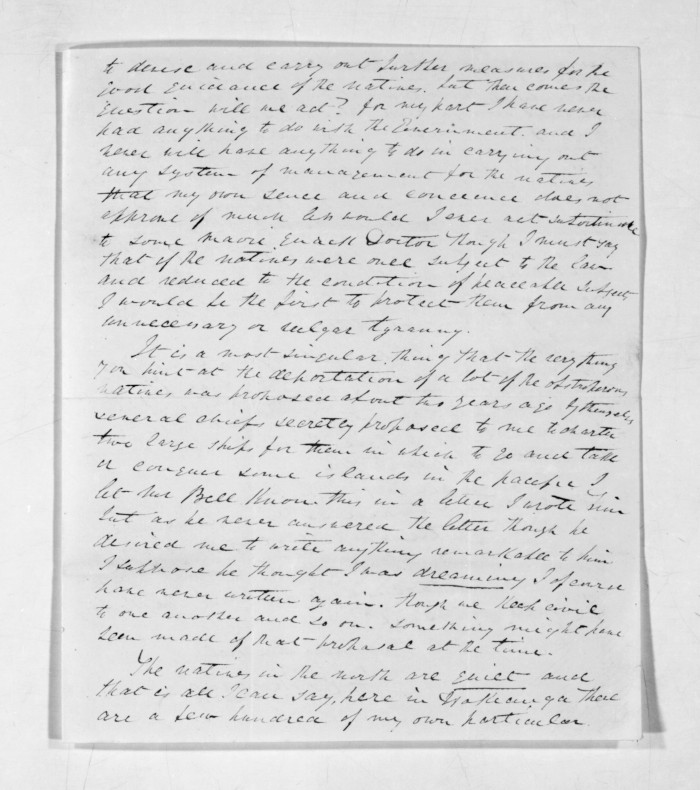 to devise and carry out further measures for the
good guidance of the natives, but then comes the
question will we act? for my part I have never
had anything to do with the Government and I
never will have anything to do in carrying out
any system of management for the natives
that my own sence and concience does not
approve of much less would I ever act subordinate
to some maori Quack Doctor though I must say
that if the natives were once subject to the law
and reduced to the condition of peaceable subjects
I would be the first to protect them from any
unnecessary or vulgar tyranny.
It is a most singular thing that the very thing
you hint at the deportation of a lot of the obstroperous
natives was proposed about two years ago by themselves
several chiefs secretly proposed to me to charter
two large ships for them in which to go and take
or conquer some islands in the pacific I
let Mr Bell know this in a letter I wrote him
but as he never answered the letter though he
desired me to write anything remarkable to him
I suppose he thought I was dreaming I of course
have never written again. though we keep civil
to one another and so on. something might have
been made of that prohosal at the time.
The natives in the north are quiet and
that is all I can say, here in Hokianga there
are a few hundred of my own particular